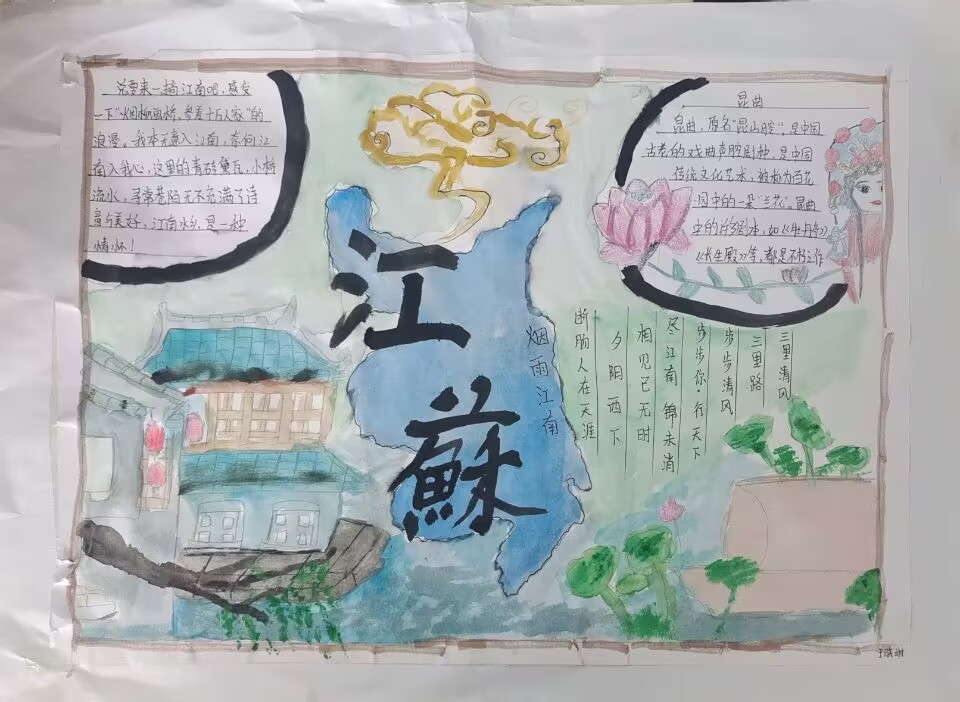 总要来一趟江南吧，感受
一下“烟柳画桥，参差十万人家”的
浪漫。我本无意入江南，奈何江
南入我心，这里的青砖黛瓦，小桥
流水，寻常巷陌无不充满了诗
意与美好，江南水乡，是一种
情怀！
江
蘇
昆曲
昆曲，原名“昆山腔”，是中国
古老的戏曲声腔剧种，是中国
传统文化艺术，被称为百花
园中的一朵“兰花”。昆曲
中的许多剧本，如《牡丹亭》
《长生殿》等，都是不朽之作
三里清风
三里路
步步清风
步步你·行天下
尽江南 锦未消
相见已无时
夕阳西下
断肠人在天涯
烟雨江南